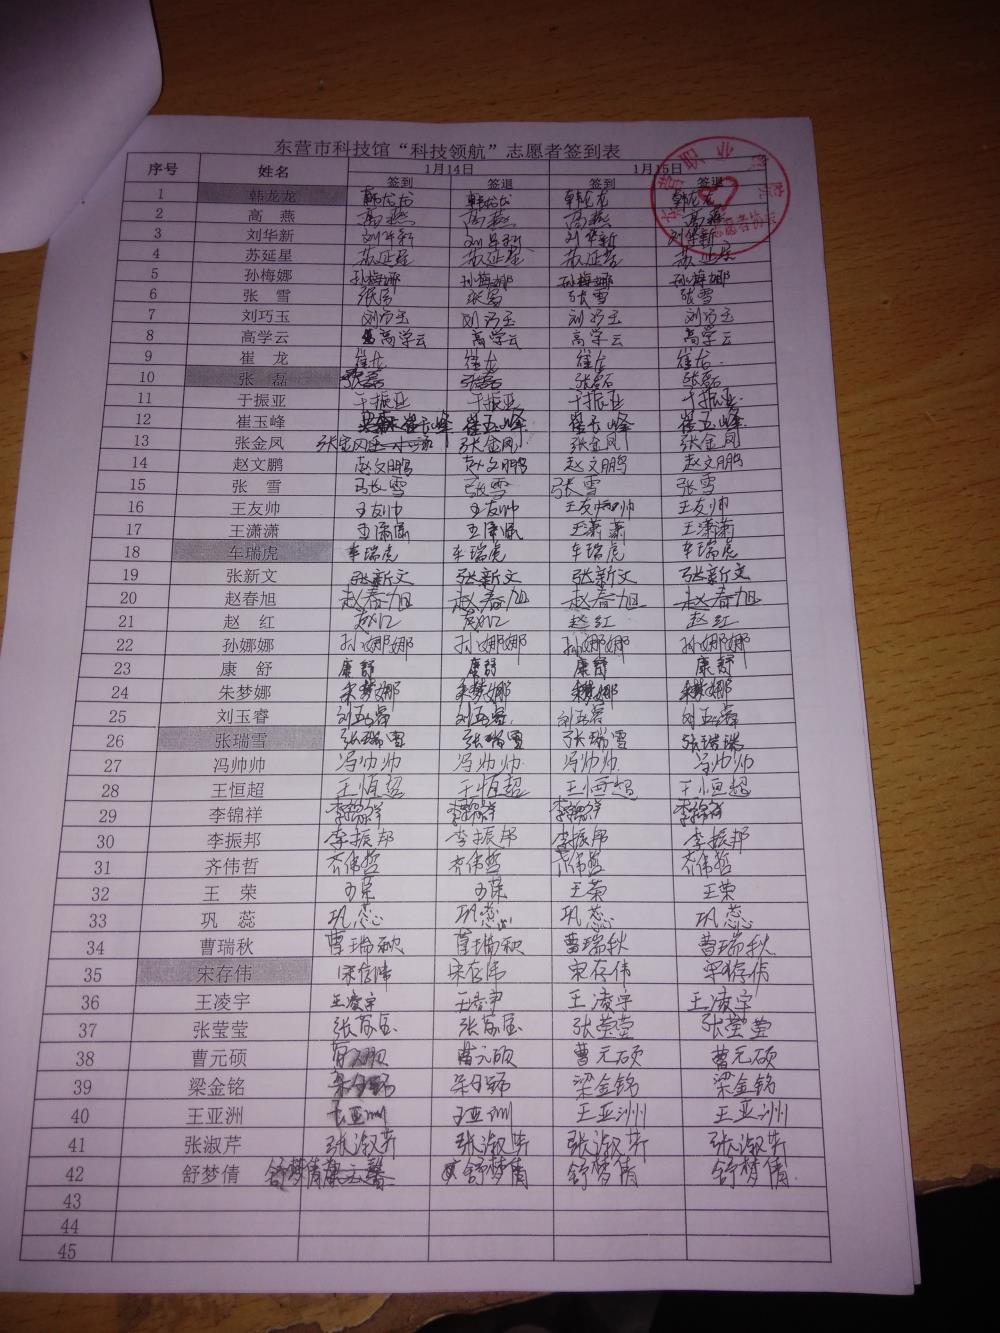 东营市科技馆“科技领航”志愿者签到表
序号 姓名 1月14日 1月15日
签到 签退 签到 签退
1 韩龙龙 韩龙龙 韩龙龙 韩龙龙 韩龙龙
2 高 燕 高燕 高燕 高燕 高燕
3 刘华新 刘华新 刘华新 刘华新 刘华新
4 苏延星 苏延星 苏延星 苏延星 苏延星
5 孙梅娜 孙梅娜 孙梅娜 孙梅娜 孙梅娜
6 张 雪 张雪 张雪 张雪 张雪
7 刘巧玉 刘巧玉 刘巧玉 刘巧玉 刘巧玉
8 高学云 高学云 高学云 高学云 高学云
9 崔 龙 崔龙 崔龙 崔龙 崔龙
10 张 磊 张磊 张磊 张磊 张磊
11 于振亚 于振亚 于振亚 于振亚 于振亚
12 崔玉峰 崔玉峰 崔玉峰 崔玉峰 崔玉峰
13 张金凤 张金凤 张金凤 张金凤 张金凤
14 赵文鹏 赵文鹏 赵文鹏 赵文鹏 赵文鹏
15 张 雪 张雪 张雪 张雪 张雪
16 王友帅 王友帅 王友帅 王友帅 王友帅
17 王潇潇 王潇潇 王潇潇
18 车瑞虎 车瑞虎 车瑞虎 车瑞虎 车瑞虎
19 张新文 张新文 张新文 张新文 张新文
20 赵春旭 赵春旭 赵春旭 赵春旭 赵春旭
21 赵 红 赵红 赵红 赵红 赵红
22 孙娜娜 孙娜娜 孙娜娜 孙娜娜 孙娜娜
23 康 舒 康舒 康舒 康舒 康舒
24 朱梦娜 朱梦娜 朱梦娜 朱梦娜 朱梦娜
25 刘玉睿 刘玉睿 刘玉睿 刘玉睿 刘玉睿
26 张瑞雪 张瑞雪 张瑞雪 张瑞雪 张瑞瑞
27 冯帅帅 冯帅帅 冯帅帅 冯帅帅 冯帅帅
28 王恒超 王恒超 王恒超 王恒超 王恒超
29 李锦祥 李锦祥 李锦祥 李锦祥 李锦祥
30 李振邦 李振邦 李振邦 李振邦 李振邦
31 齐伟哲 齐伟哲 齐伟哲 齐伟哲 齐伟哲
32 王 荣 王荣 王荣 王荣 王荣
33 巩 蕊 巩蕊 巩蕊 巩蕊 巩蕊
34 曹瑞秋 曹瑞秋 曹瑞秋 曹瑞秋 曹瑞秋
35 宋存伟 宋存伟 宋存伟 宋存伟 宋存伟
36 王凌宇 王凌宇 王凌宇 王凌宇
37 张莹莹 张莹莹 张莹莹
38 曹元硕 曹元硕 曹元硕 曹元硕
39 梁金铭 梁金铭 梁金铭
40 王亚洲 王亚洲 王亚洲 王亚洲 王亚洲
41 张淑芹 张淑芹 张淑芹 张淑芹 张淑芹
42 舒梦倩 舒梦倩 舒梦倩 舒梦倩 舒梦倩
43
44
45